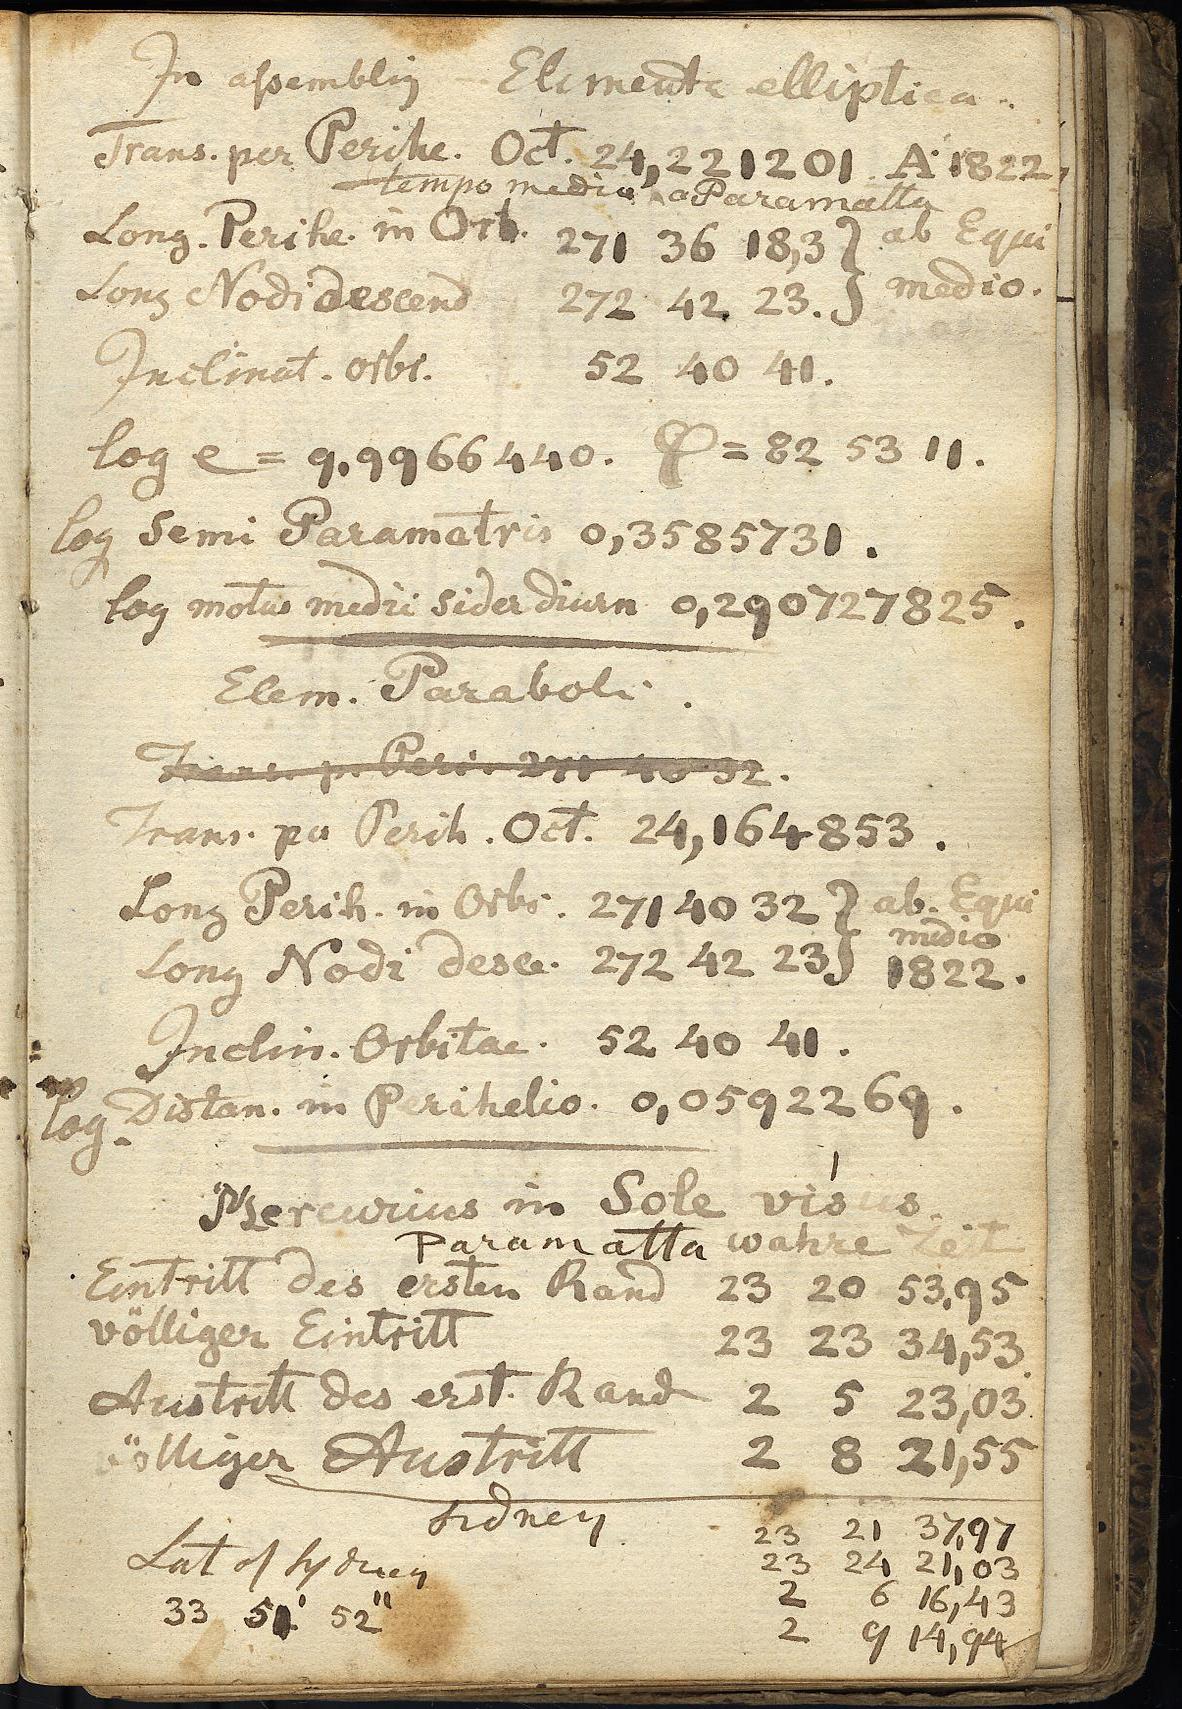 In assembling Elementa elliptica.
Trans. per Perihe. Oct. 24,221201. A. 1822,
tempo medio a Paramatta
Long. Perihe. in Orb. 271 36 18,3 } ab Equi
Long Nodi descend 272 42 23. } medio.
Inclinat. orbi. 52 40 41.
log e = 9.9966440. φ = 82 53 11.
log Semi Parametris 0,3585731.
log motus medii sider diurn 0,290727825.
Elem. Paraboli.
Trans. p. Peri. 271 40 32.
Trans. per Perih. Oct. 24,164853.
Long Perih. in Orbi. 271 40 32 } ab. Equi
medio
Long Nodi desce. 272 42 23 } 1822.
Inclin. Orbitae. 52 40 41.
log Distan. in Perihelio. 0,0592269.
Mercurius in Sole visus.
Paramatta wahre Zeit
Eintritt des ersten Rand 23 20 53,95
völliger Eintritt 23 23 34,53
Austritt des erst. Rand 2 5 23,03
völliger Austritt 2 8 21,55
Sidney 23 21 37,97
23 24 21,03
Lat of Sydney 2 6 16,43
33 51' 52" 2 9 14,94